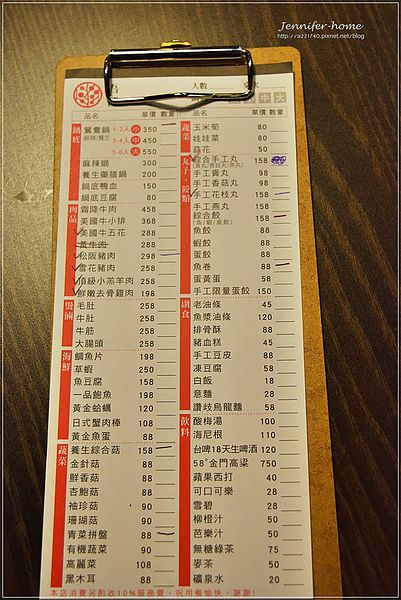 Jennifer-home
http://a221740.pixnet.net/blog
人數
中 大
品名 單價 數量
鍋底
鴛鴦鍋 1-2人 小 350
麻辣/養生 3-4人 中 450
5-6人 大 550
麻辣鍋 300
養生藥膳鍋 200
鍋底鴨血 150
鍋底豆腐 80
肉品
霜降牛肉 458
美國牛小排 368
美國牛五花 288
黃牛肉 288
松阪豬肉 298
雪花豬肉 258
頂級小羔羊肉 258
鮮嫩去骨雞肉 198
毛肚 258
牛肚 258
牛筋 258
大腸頭 258
海鮮
鯛魚片 198
草蝦 250
魚豆腐 158
一品鮑魚 198
黃金蛤蠣 120
日式蟹肉棒 108
黃金魚蛋 88
蔬菜
養生綜合菇 158
金針菇 88
鮮香菇 88
杏鮑菇 88
袖珍菇 90
珊瑚菇 90
青菜拼盤 88
有機蔬菜 90
高麗菜 108
黑木耳 88
品名 單價 數量
蔬菜
玉米筍 80
娃娃菜 80
蒜花 50
丸子、餃類
綜合手工丸 158
手工貢丸 98
手工香菇丸 98
手工花枝丸 158
手工燕丸 98
綜合餃 158
(魚/蝦/蛋餃)
魚餃 88
蝦餃 88
蛋餃 88
魚卷 88
蛋黃蛋 58
手工限量蛋餃 150
副食
老油條 45
魚漿油條 120
排骨酥 88
豬血糕 45
手工豆皮 88
凍豆腐 58
白飯 18
意麵 28
讚歧烏龍麵 58
飲料
酸梅湯 100
海尼根 110
台啤18天生啤酒 120
58°金門高粱 750
蘋果西打 40
可口可樂 28
雪碧 28
柳橙汁 50
芭樂汁 50
無糖綠茶 75
麥茶 50
礦泉水 20
本店消費另酌收10%服務費，祝用餐愉快，謝謝!